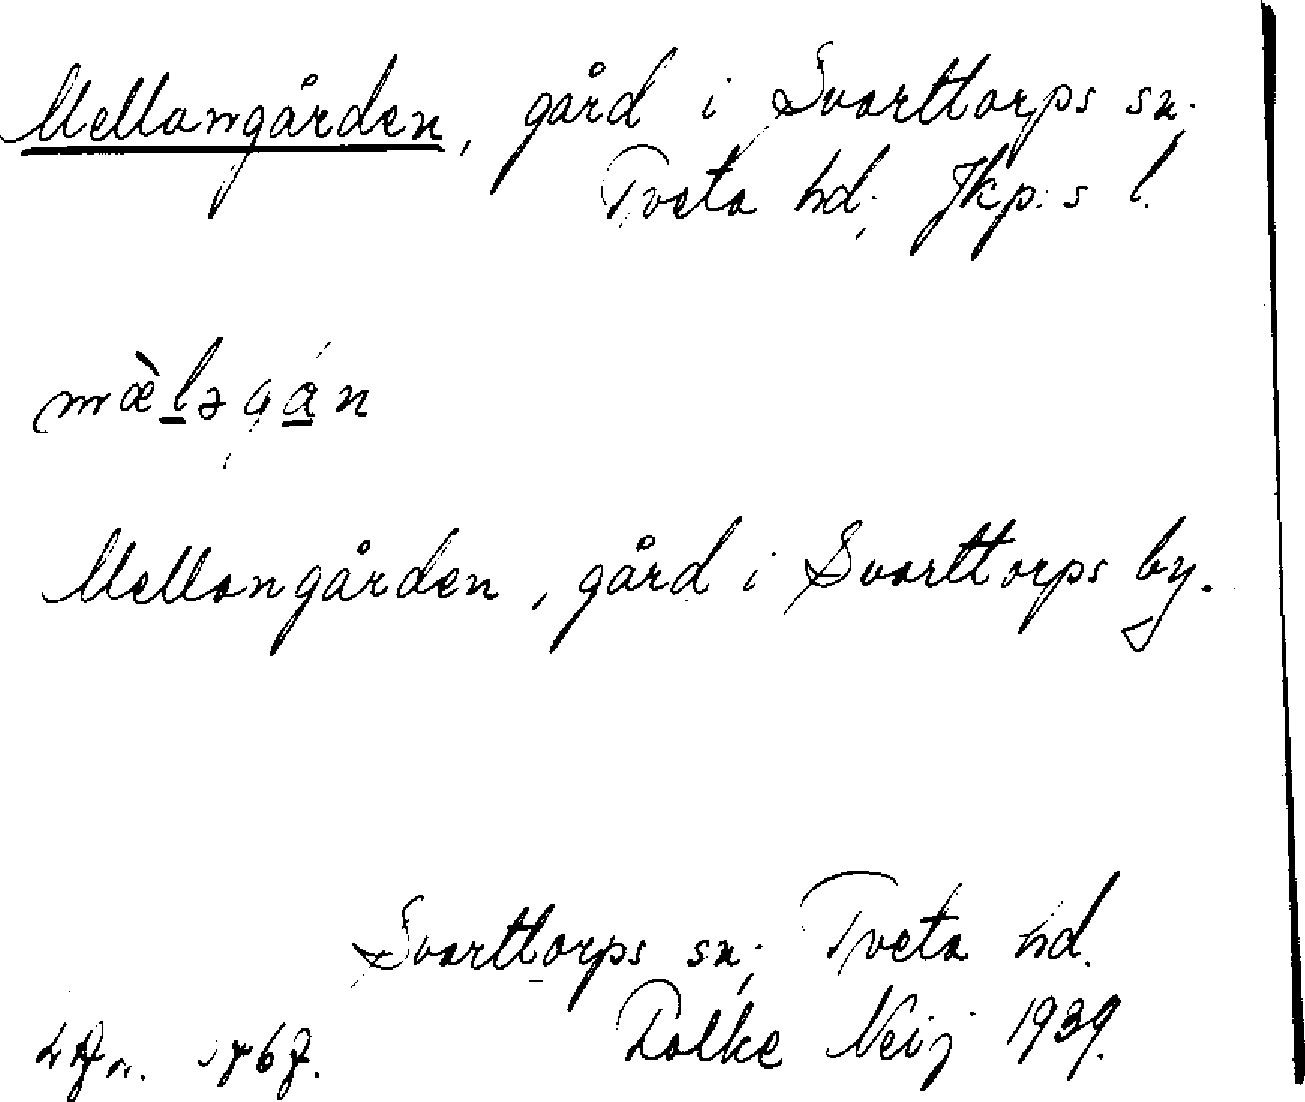 Mellangården, gård i Svarttorps sn;
Tveta hd; Jkp:s l.
mæ̀l̲əgá̲n
Mellangården, gård i Svarttorps by.
Svarttorps sn; Tveta hd.
Folke Neij 1939.